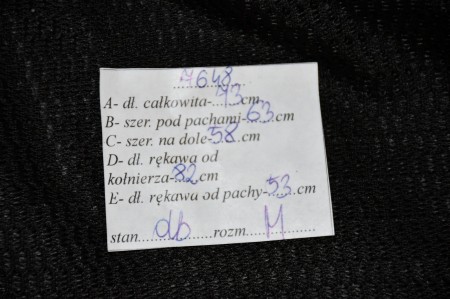 A648
A- dł. całkowita-...73cm
B- szer. pod pachami-63.cm
C- szer. na dole-58.cm
D- dł. rękawa od
kołnierza-82cm
E- dł. rękawa od pachy-53.cm
stan....db....rozm...M....